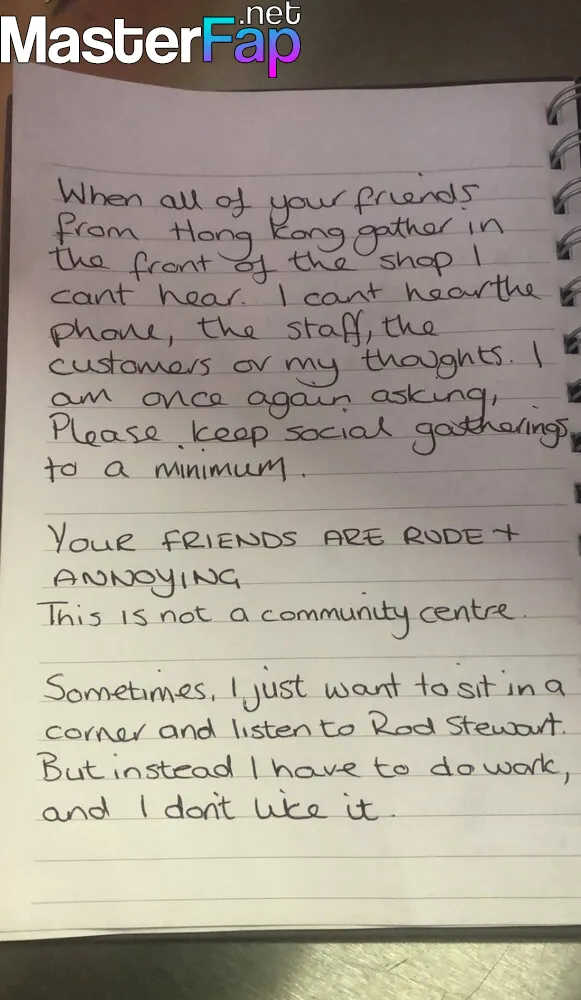 MasterFap.net
When all of your friends
from Hong Kong gather in
the front of the shop I
cant hear. I cant hear the
phone, the staff, the
customers or my thoughts. I
am once again asking,
Please keep social gatherings
to a minimum.
YOUR FRIENDS ARE RUDE +
ANNOYING
This is not a community centre.
Sometimes, I just want to sit in a
corner and listen to Rod Stewart.
But instead I have to do work,
and I don't like it.